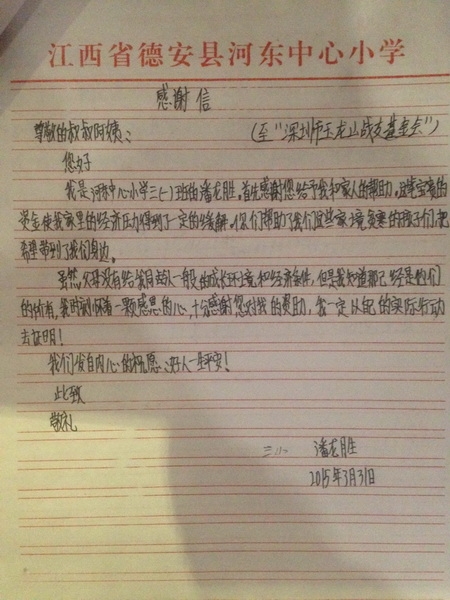 江西省德安县河东中心小学
感谢信
尊敬的叔叔阿姨：
(至“深圳市玉龙山战友基金会”)
您好
我是河东中心小学三(一)班的潘龙胜。首先感谢您给予我和家人的帮助，这笔宝贵的
资金使我家里的经济压力得到了一定的缓解。你们帮助了我们这些家境贫寒的孩子们，把
希望带到了我们身边。
虽然父母没有给我同龄人一般的成长环境和经济条件，但是我知道那已经是他们
的所有，我时刻怀着一颗感恩的心，十分感谢您对我的赞助，我一定以自己的实际行动
去证明！
我们发自内心的祝愿，好人一生平安！
此致
敬礼
三(一) 潘龙胜
2015年3月31日